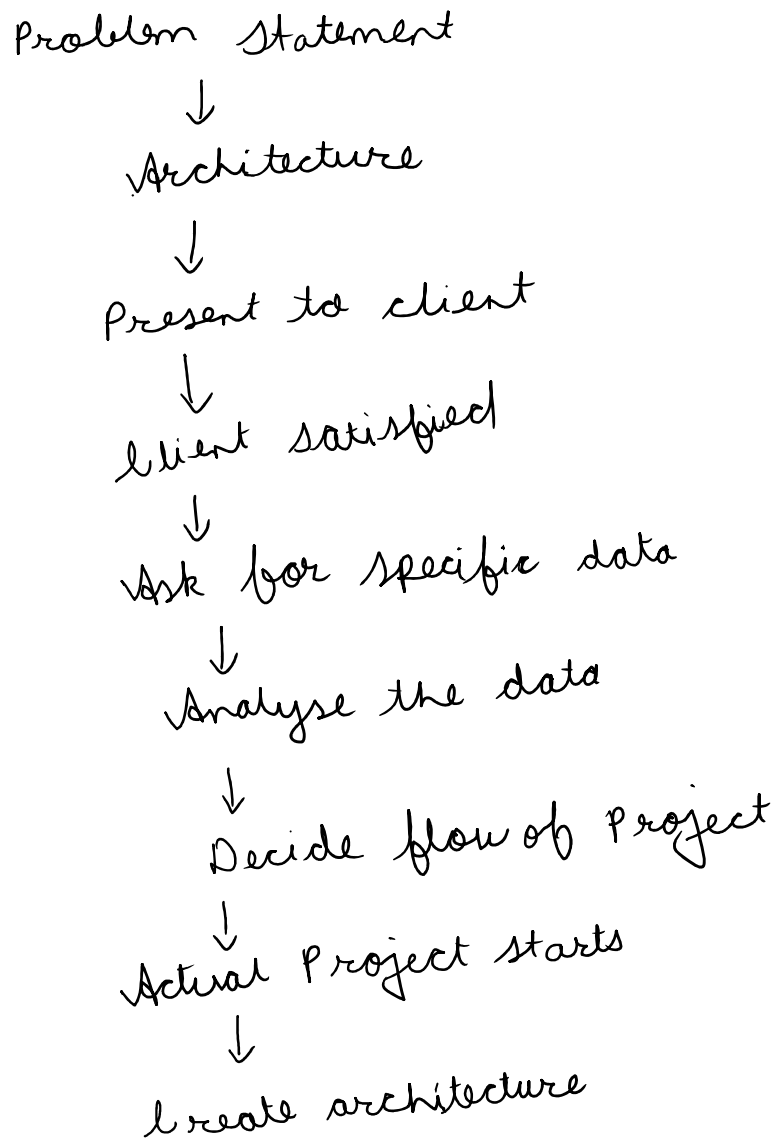 Problem Statement
↓
Architecture
↓
Present to client
↓
Client satisfied
↓
Ask for specific data
↓
Analyse the data
↓
Decide flow of Project
↓
Actual Project starts
↓
Create architecture